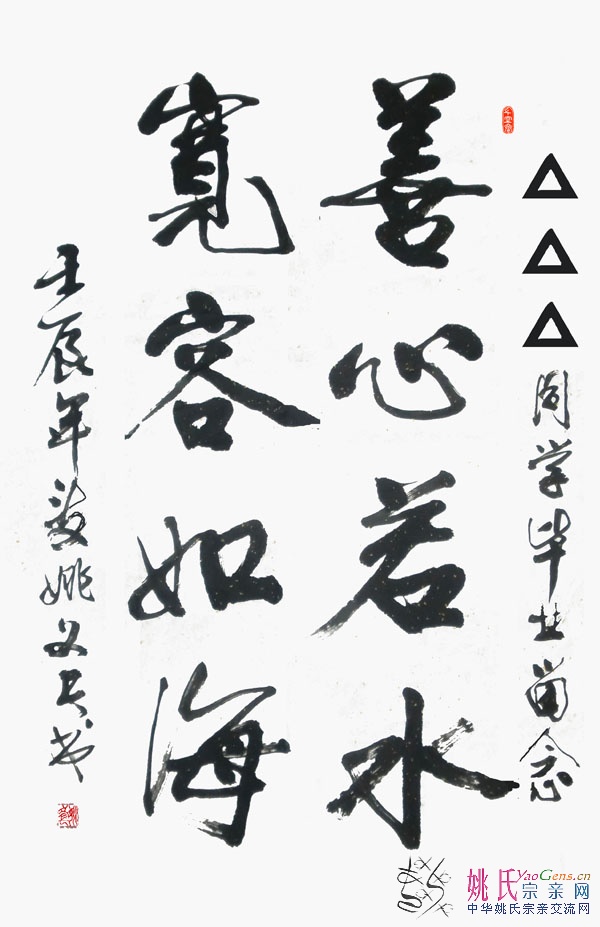 △△△同学毕业留念
善心若水
寛容如海
壬辰年夏姚文兵书
姚氏宗亲网
YaoGens.cn
中华姚氏宗亲交流网